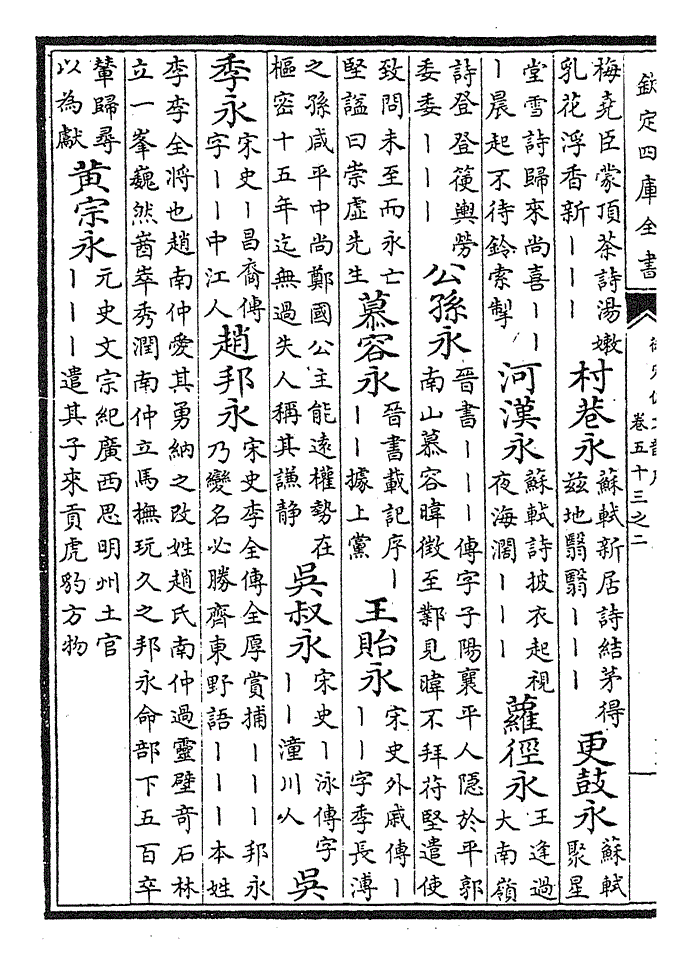 欽定四庫全書
卷五十三之二
梅堯臣蒙頂茶詩湯嫩
乳花浮香新丨丨丨
村巷永
蘇軾新居詩結茅得
兹地翳翳丨丨丨
更鼓永
蘇軾
聚星
堂雪詩歸來尚喜丨丨
丨晨起不待鈴索掣
河漢永
蘇軾詩披衣起視
夜海濶丨丨丨
蘿徑永
王逢過
大南嶺
詩登登篗輿勞
委委丨丨丨
公孫永
晉書丨丨丨傳字子陽襄平人隱於平郭
南山慕容暐徵至鄴見暐不拜苻堅遣使
致問未至而永亡
堅諡曰崇虛先生
慕容永
晉書載記序丨
丨丨據上黨
王貽永
宋史外戚傳丨
丨丨字季長溥
之孫咸平中尚鄭國公主能遠權勢在
樞密十五年迄無過失人稱其謙静
吳叔永
宋史丨泳傳字
丨丨潼川人
吳
季永
宋史丨昌裔傳
字丨丨中江人
趙邦永
宋史李全傳全厚賞捕丨丨丨邦永
乃變名必勝齊東野語丨丨丨本姓
李李全將也趙南仲愛其勇納之改姓趙氏南仲過靈壁竒石林
立一峯巍然崷崒秀潤南仲立馬撫玩久之邦永命部下五百卒
輦歸尋
以為獻
黄宗永
元史文宗紀廣西思明州土官
丨丨丨遣其子來貢虎豹方物